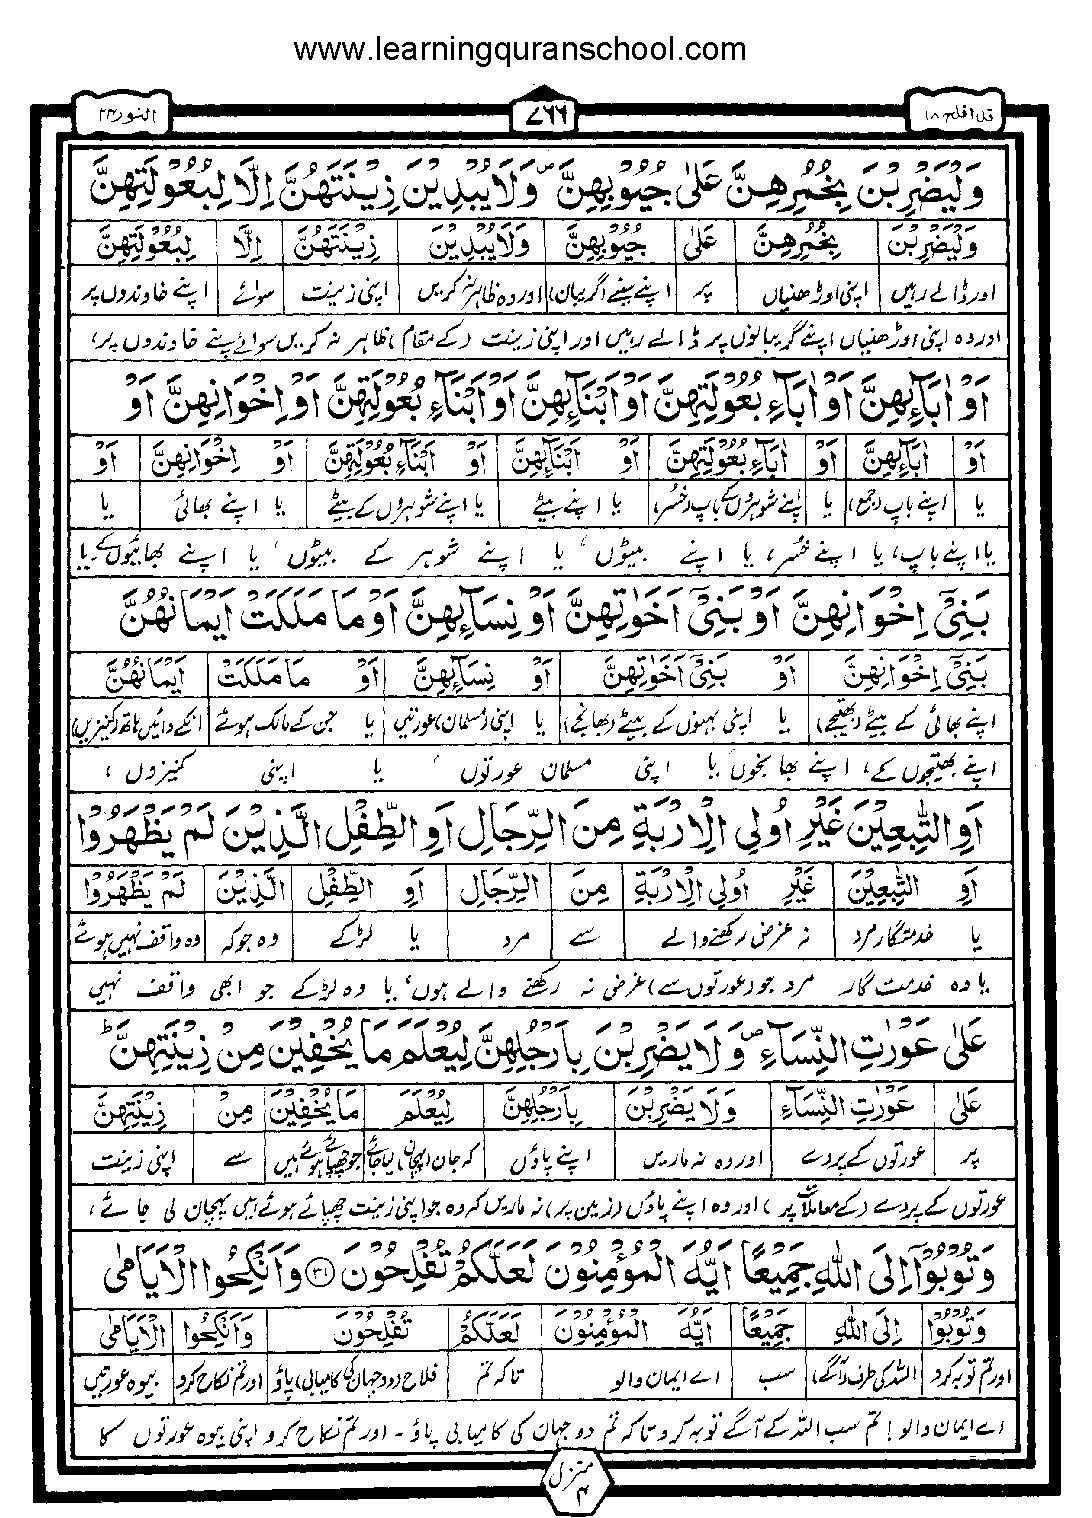 www.learningquranschool.com
قد افلح ۱۸ ۷۶۶ النور ۲۴
وَلْيَضْرِبْنَ بِخُمُرِهِنَّ عَلٰى جُيُوْبِهِنَّ ۖ وَلَا يُبْدِيْنَ زِيْنَتَهُنَّ اِلَّا لِبُعُوْلَتِهِنَّ
وَلْيَضْرِبْنَ بِخُمُرِهِنَّ عَلٰى جُيُوْبِهِنَّ وَلَا يُبْدِيْنَ زِيْنَتَهُنَّ اِلَّا لِبُعُوْلَتِهِنَّ
اور ڈالے رہیں اپنی اوڑھنیاں پر اپنے سینے (گریبان) اور وہ ظاہر نہ کریں اپنی زینت سوائے اپنے خاوندوں پر
اور وہ اپنی اوڑھنیاں اپنے گریبانوں پر ڈالے رہیں اور اپنی زینت (کے مقام) ظاہر نہ کریں سوائے اپنے خاوندوں پر،
اَوْ اٰبَآئِهِنَّ اَوْ اٰبَآءِ بُعُوْلَتِهِنَّ اَوْ اَبْنَآئِهِنَّ اَوْ اَبْنَآءِ بُعُوْلَتِهِنَّ اَوْ اِخْوَانِهِنَّ اَوْ
اَوْ اٰبَآئِهِنَّ اَوْ اٰبَآءِ بُعُوْلَتِهِنَّ اَوْ اَبْنَآئِهِنَّ اَوْ اَبْنَآءِ بُعُوْلَتِهِنَّ اَوْ اِخْوَانِهِنَّ اَوْ
یا اپنے باپ (جمع) یا اپنے شوہروں کے باپ (خسر) یا اپنے بیٹے یا اپنے شوہروں کے بیٹے یا اپنے بھائی یا
یا اپنے باپ، یا اپنے خسر، یا اپنے بیٹوں، یا اپنے شوہر کے بیٹوں، یا اپنے بھائیوں کے، یا
بَنِىْٓ اِخْوَانِهِنَّ اَوْ بَنِىْٓ اَخَوٰتِهِنَّ اَوْ نِسَآئِهِنَّ اَوْ مَا مَلَكَتْ اَيْمَانُهُنَّ
بَنِىْٓ اِخْوَانِهِنَّ اَوْ بَنِىْٓ اَخَوٰتِهِنَّ اَوْ نِسَآئِهِنَّ اَوْ مَا مَلَكَتْ اَيْمَانُهُنَّ
اپنے بھائی کے بیٹے (بھتیجے) یا اپنی بہنوں کے بیٹے (بھانجے) یا اپنی (مسلمان) عورتیں یا جن کے مالک ہوئے انکے دائیں ہاتھ (کنیزیں)
اپنے بھتیجوں کے، اپنے بھانجوں یا اپنی مسلمان عورتوں، یا اپنی کنیزوں،
اَوِ التّٰبِعِيْنَ غَيْرِ اُولِى الْاِرْبَةِ مِنَ الرِّجَالِ اَوِ الطِّفْلِ الَّذِيْنَ لَمْ يَظْهَرُوْا
اَوِ التّٰبِعِيْنَ غَيْرِ اُولِى الْاِرْبَةِ مِنَ الرِّجَالِ اَوِ الطِّفْلِ الَّذِيْنَ لَمْ يَظْهَرُوْا
یا خدمتگار مرد نہ غرض رکھنے والے سے مرد یا لڑکے وہ جو کہ وہ واقف نہیں ہوئے
یا وہ خدمت گار مرد جو (عورتوں سے) غرض نہ رکھنے والے ہوں، یا وہ لڑکے جو ابھی واقف نہیں
عَلٰى عَوْرٰتِ النِّسَآءِ ۖ وَلَا يَضْرِبْنَ بِاَرْجُلِهِنَّ لِيُعْلَمَ مَا يُخْفِيْنَ مِنْ زِيْنَتِهِنَّ ؕ
عَلٰى عَوْرٰتِ النِّسَآءِ وَلَا يَضْرِبْنَ بِاَرْجُلِهِنَّ لِيُعْلَمَ مَا يُخْفِيْنَ مِنْ زِيْنَتِهِنَّ
پر عورتوں کے پردے اور وہ نہ ماریں اپنے پاؤں کہ جان (پہچان) لیا جائے جو چھپائے ہوئے ہیں سے اپنی زینت
عورتوں کے پردے (کے معاملات) پر، اور وہ اپنے پاؤں (زمین پر) نہ ماریں کہ وہ جو اپنی زینت چھپائے ہوئے ہیں پہچان لی جائے،
وَتُوْبُوْٓا اِلَى اللّٰهِ جَمِيْعًا اَيُّهَ الْمُؤْمِنُوْنَ لَعَلَّكُمْ تُفْلِحُوْنَ ۳۱ وَاَنْكِحُوا الْاَيَامٰى
وَتُوْبُوْٓا اِلَى اللّٰهِ جَمِيْعًا اَيُّهَ الْمُؤْمِنُوْنَ لَعَلَّكُمْ تُفْلِحُوْنَ وَاَنْكِحُوا الْاَيَامٰى
اور تم توبہ کرو اللہ کی طرف (آگے) سب اے ایمان والو تاکہ تم فلاح (دو جہان کی کامیابی) پاؤ اور تم نکاح کرو بیوہ عورتیں
اے ایمان والو! تم سب اللہ کے آگے توبہ کرو تاکہ تم دو جہان کی کامیابی پاؤ ۔ اور تم نکاح کرو اپنی بیوہ عورتوں کا
منزل ۴